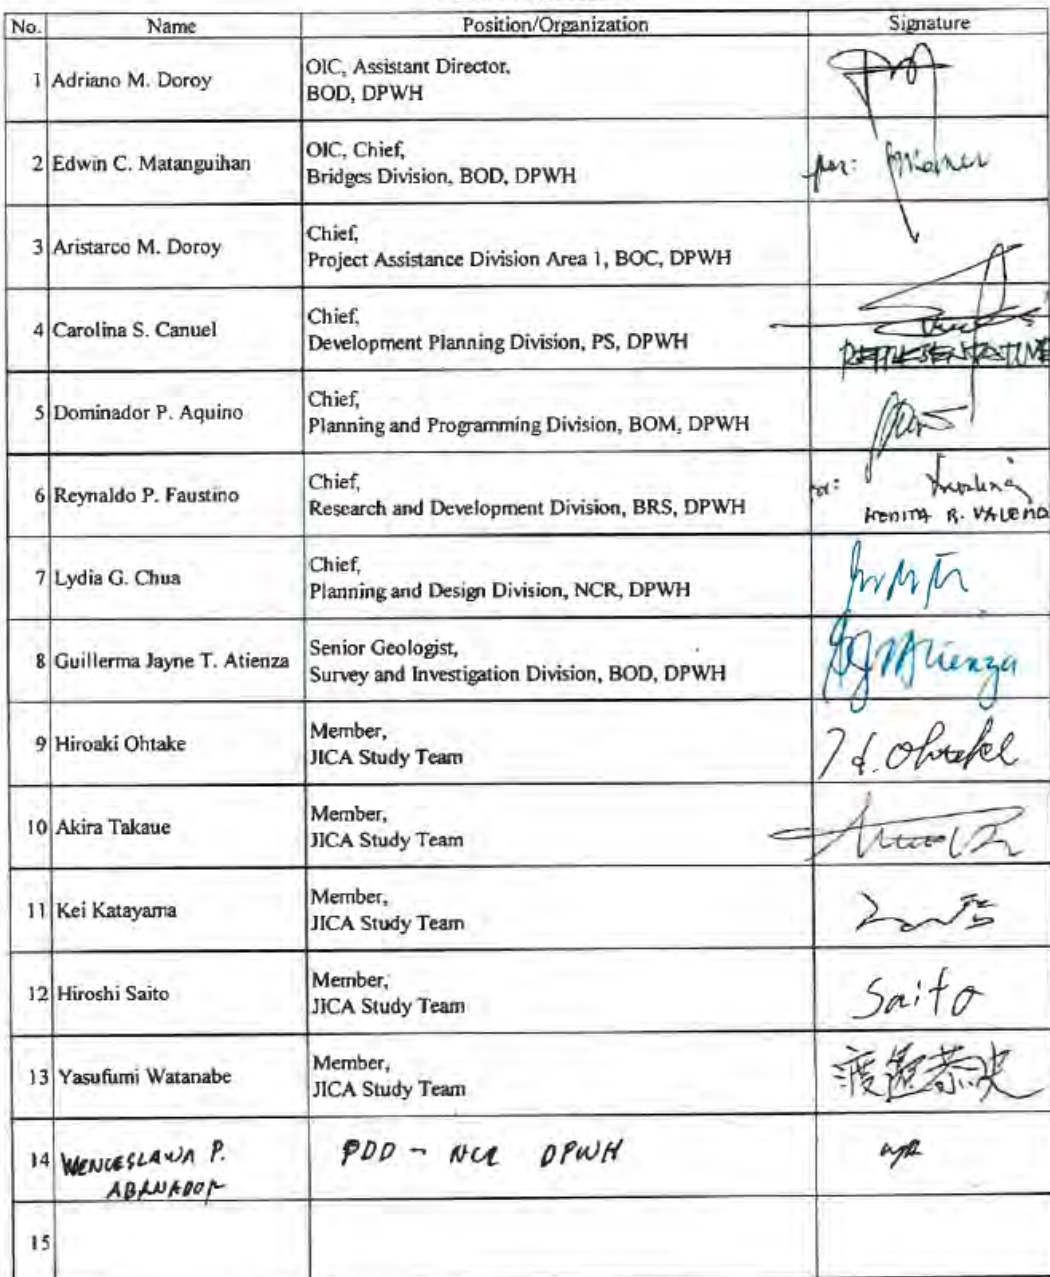 No. Name Position/Organization Signature
1 Adriano M. Doroy
OIC, Assistant Director,
BOD, DPWH
2 Edwin C. Matanguihan
OIC, Chief,
Bridges Division, BOD, DPWH
per:
3 Aristarco M. Doroy
Chief,
Project Assistance Division Area 1, BOC, DPWH
4 Carolina S. Canuel
Chief,
Development Planning Division, PS, DPWH
REPRESENTATIVE
5 Dominador P. Aquino
Chief,
Planning and Programming Division, BOM, DPWH
6 Reynaldo P. Faustino
Chief,
Research and Development Division, BRS, DPWH
R. VALENO
7 Lydia G. Chua
Chief,
Planning and Design Division, NCR, DPWH
8 Guillerma Jayne T. Atienza
Senior Geologist,
Survey and Investigation Division, BOD, DPWH
GJTAtienza
9 Hiroaki Ohtake
Member,
JICA Study Team
H. Ohtake
10 Akira Takaue
Member,
JICA Study Team
11 Kei Katayama
Member,
JICA Study Team
12 Hiroshi Saito
Member,
JICA Study Team
Saito
13 Yasufumi Watanabe
Member,
JICA Study Team
渡邉恭史
14 WENCESLAWA P.
ABANADOR
PDD - NCR DPWH
15